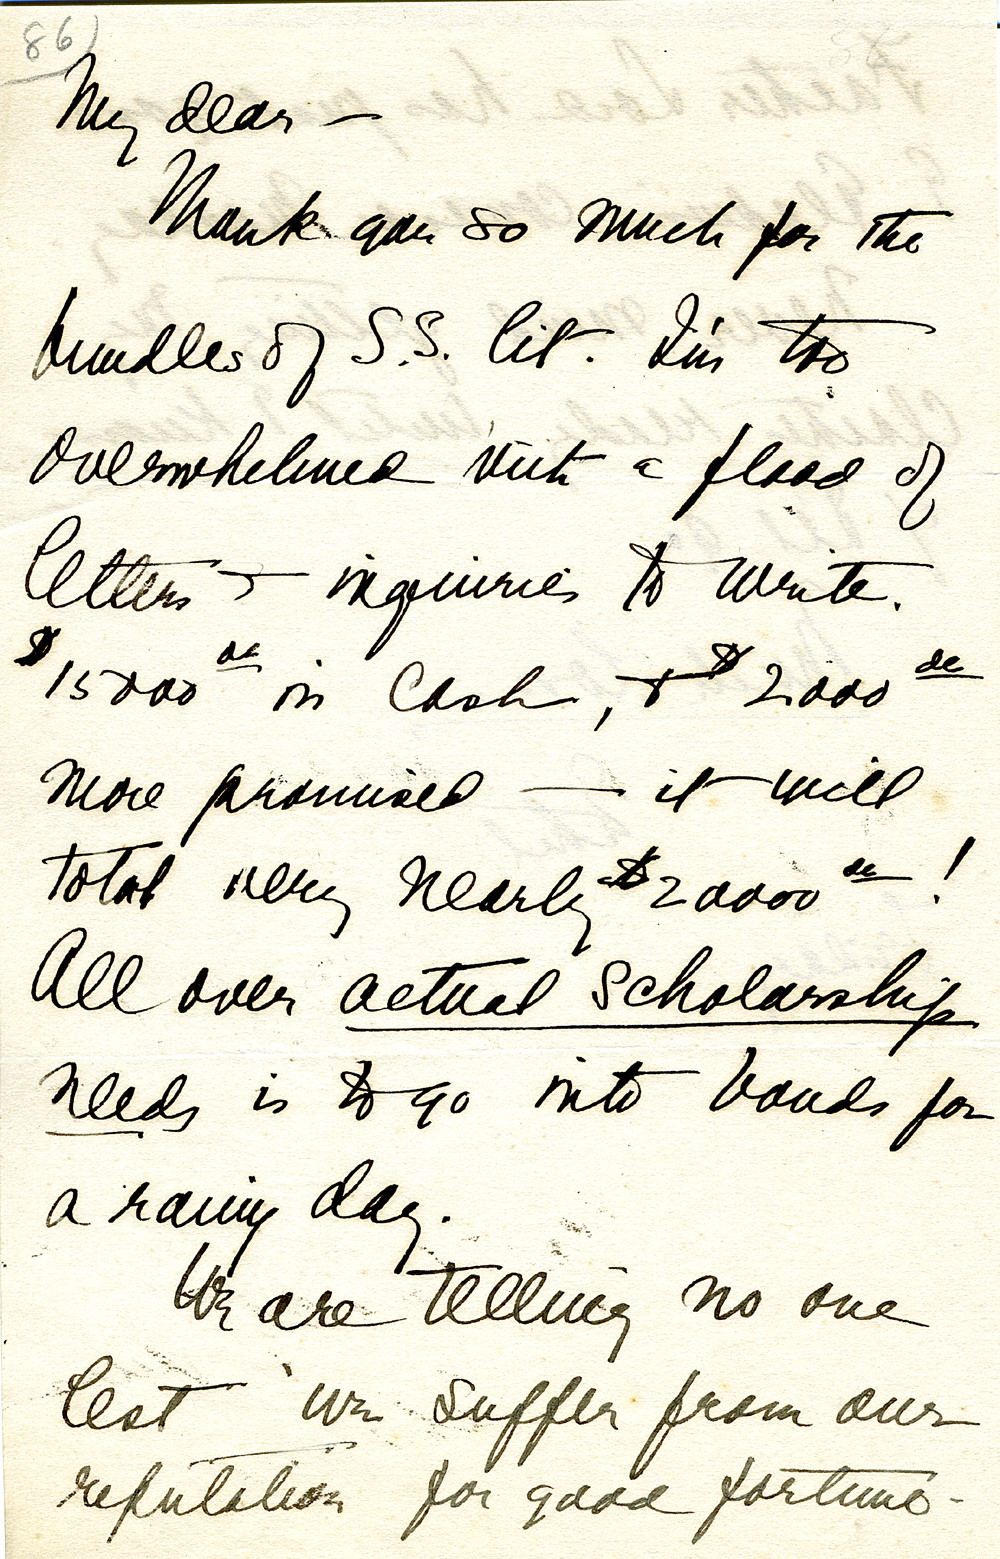 86)
My dear —
Thank you so much for the
bundles of S.S. lit. I'm too
overwhelmed with a flood of
letters & inquiries to write.
$15000 00 in cash, & $2000 00
more promised — it will
total very nearly $20000 00!
All over actual scholarship
needs is to go into bonds for
a rainy day.
We are telling no one
lest we suffer from our
reputation for good fortune -